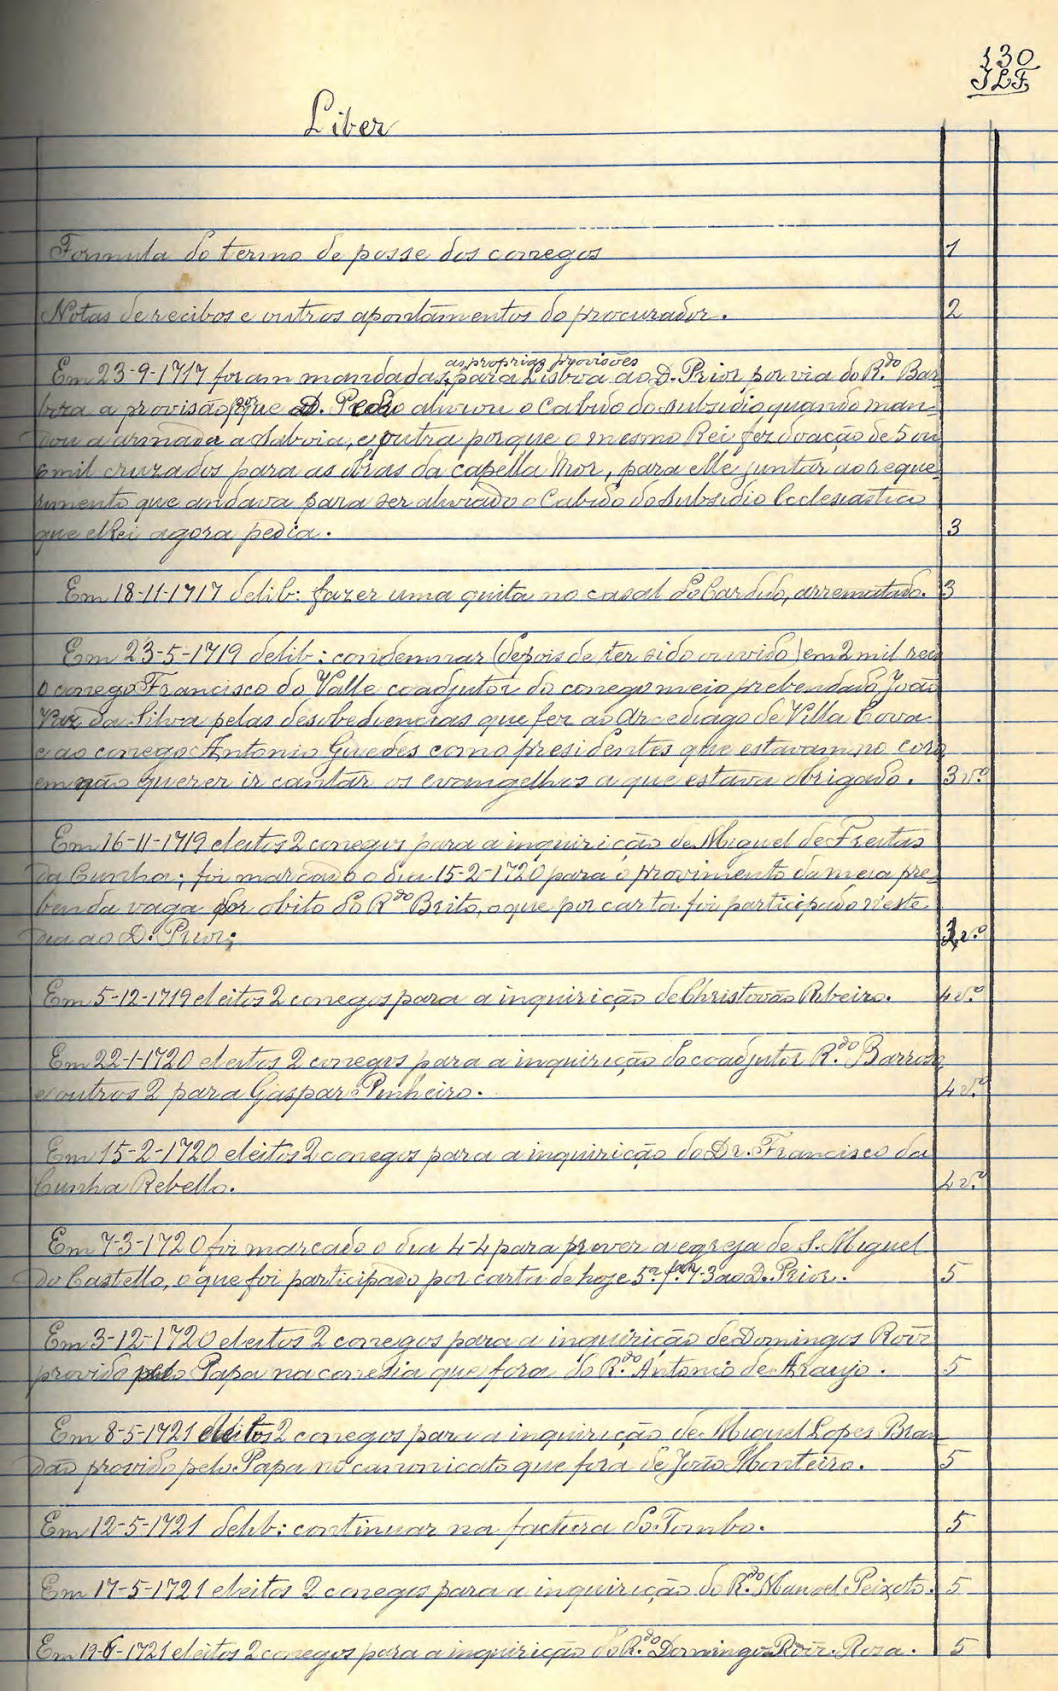 130
JLF
Liber
Formula do termo de posse dos conegos 1
Notas de recibos e outros apontamentos do procurador. 2
as proprias provisões
Em 23-9-1717 foram mandadas, para Lisboa ao D. Prior por via do R.do Bar-
bosa a provisão porque D. Pedro aliviou o Cabido do subsidio quando man-
dou a armada a Saboia, e outra porque o mesmo Rei fez doação de 5 ou
6 mil cruzados para as obras da capella Mor, para elle juntar ao reque-
rimento que andava para ser aliviado o Cabido do Subsidio Ecclesiastico
que elRei agora pedia. 3
Em 18-11-1717 delib: fazer uma quita no casal do Cardido, arrematado. 3
Em 23-5-1719 delib: condemnar (depois de ter sido ouvido) em 2 mil reis
o conego Francisco do Valle coadjutor do conego meio prebendado, João
Vaz da Silva pelas desobediencias que fez ao Arcediago de Villa Cova
e ao conego Antonio Guedes como presidentes que estavam no coro
em não querer ir cantar os evangelhos a que estava obrigado. 3 v.º
Em 16-11-1719 eleitos 2 conegos para a inquirição de Miguel de Freitas
da Cunha; foi marcado o dia 15-2-1720 para o provimento da meia pre-
benda vaga por obito do R.do Brito, o que por carta foi participado n'este
dia ao D. Prior; 3 v.º
Em 5-12-1719 eleitos 2 conegos para a inquirição de Christovão Ribeiro. 4 v.º
Em 22-1-1720 eleitos 2 conegos para a inquirição do coadjutor R.do Barroso,
e outros 2 para Gaspar Pinheiro. 4 v.º
Em 15-2-1720 eleitos 2 conegos para a inquirição do Dr. Francisco da
Cunha Rebello. 4 v.º
Em 7-3-1720 foi marcado o dia 4-4 para prover a egreja de S. Miguel
do Castello, o que foi participado por carta de hoje 5.ª fr.ª 7-3 ao D. Prior. 5
Em 3-12-1720 eleitos 2 conegos para a inquirição de Domingos Roiz
provido pelo Papa na conesia que fora do R.do Antonio de Araujo. 5
Em 8-5-1721 eleitos 2 conegos para a inquirição de Miguel Lopes Bran-
dão provido pelo Papa no canonicato que fora de João Monteiro. 5
Em 12-5-1721 delib: continuar na factura do Tombo. 5
Em 17-5-1721 eleitos 2 conegos para a inquirição do R.do Manoel Peixoto. 5
Em 19-6-1721 eleitos 2 conegos para a inquirição do R.do Domingos Roiz. Rosa. 5